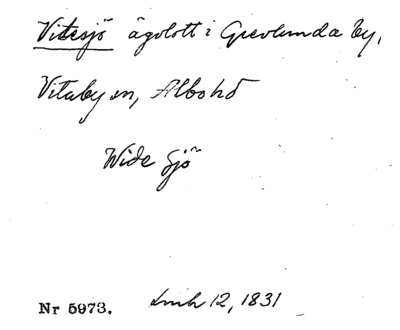 Vitesjö ägolott i Grevlunda by,
Vitaby sn, Albo hd
Wide Sjö
Nr 5973. Lmh 12, 1831